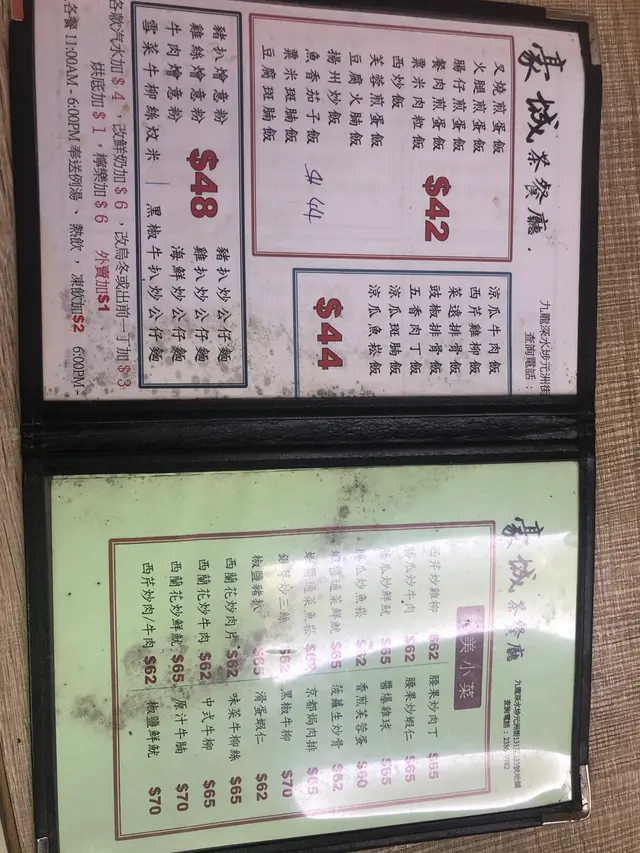 豪城茶餐廳
九龍深水埗元洲街
查詢電話:
叉燒煎蛋飯
火腿煎蛋飯
腸仔煎蛋飯
餐肉煎蛋飯
粟米肉粒飯
西炒飯
芙蓉煎蛋飯
豆腐火腩飯
揚州炒飯
魚香茄子飯
粟米斑腩飯
豆腐斑腩飯
$42
$44
涼瓜牛肉飯
西芹雞柳飯
菜遠排骨飯
豉椒排骨飯
五香肉丁飯
涼瓜斑腩飯
涼瓜魚崧飯
$44
豬扒燴意粉
雞絲燴意粉
牛肉燴意粉
雪菜牛柳絲炆米
$48
豬扒炒公仔麵
雞扒炒公仔麵
海鮮炒公仔麵
黑椒牛扒炒公仔麵
各款汽水加$4,改鮮奶加$6,改烏冬或出前一丁加$3
烘底加$1,檸樂加$6 外賣加$1
各餐 11:00AM - 6:00PM 奉送例湯、熱飲,凍飲加$2 6:00PM -
豪城茶餐廳
九龍深水埗元洲街131-133號地舖
查詢電話: 2386 7782
美小菜
西芹炒雞柳 $62 腰果炒肉丁 $65
涼瓜炒牛肉 $62 腰果炒蝦仁 $65
涼瓜炒鮮魷 $65 醬爆雞球 $65
涼瓜炒魚崧 $62 香煎芙蓉蛋 $60
通菜鮮魷 $65 菠蘿生炒骨 $62
通菜魚崧 $62 京都焗肉排 $65
炒三絲 $62 黑椒牛柳 $70
椒鹽豬扒 $65 滑蛋蝦仁 $62
西蘭花炒肉片 $62 味菜牛柳絲 $65
西蘭花炒牛肉 $62 中式牛柳 $65
西蘭花炒鮮魷 $65 原汁牛腩 $70
西芹炒肉/牛肉 $62 椒鹽鮮魷 $70